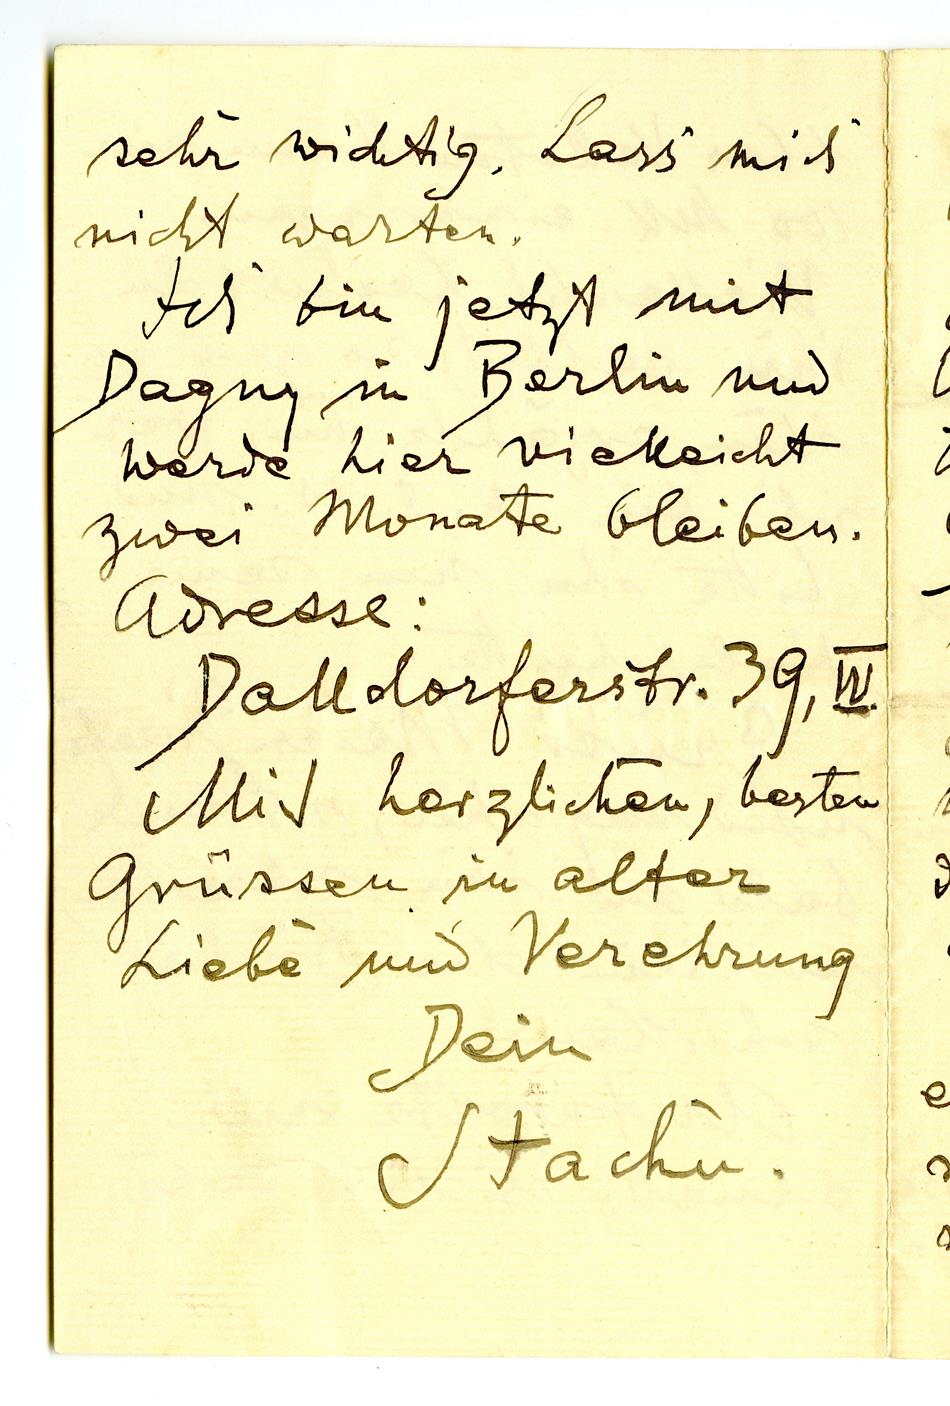 sehr wichtig. Lass mich
nicht warten.
Ich bin jetzt mit
Dagny in Berlin und
werde hier vielleicht
zwei Monate bleiben.
Adresse:
Dalldorferstr. 39, IV.
Mit herzlichen, besten
Grüssen in alter
Liebe und Verehrung
Dein
Stachu.